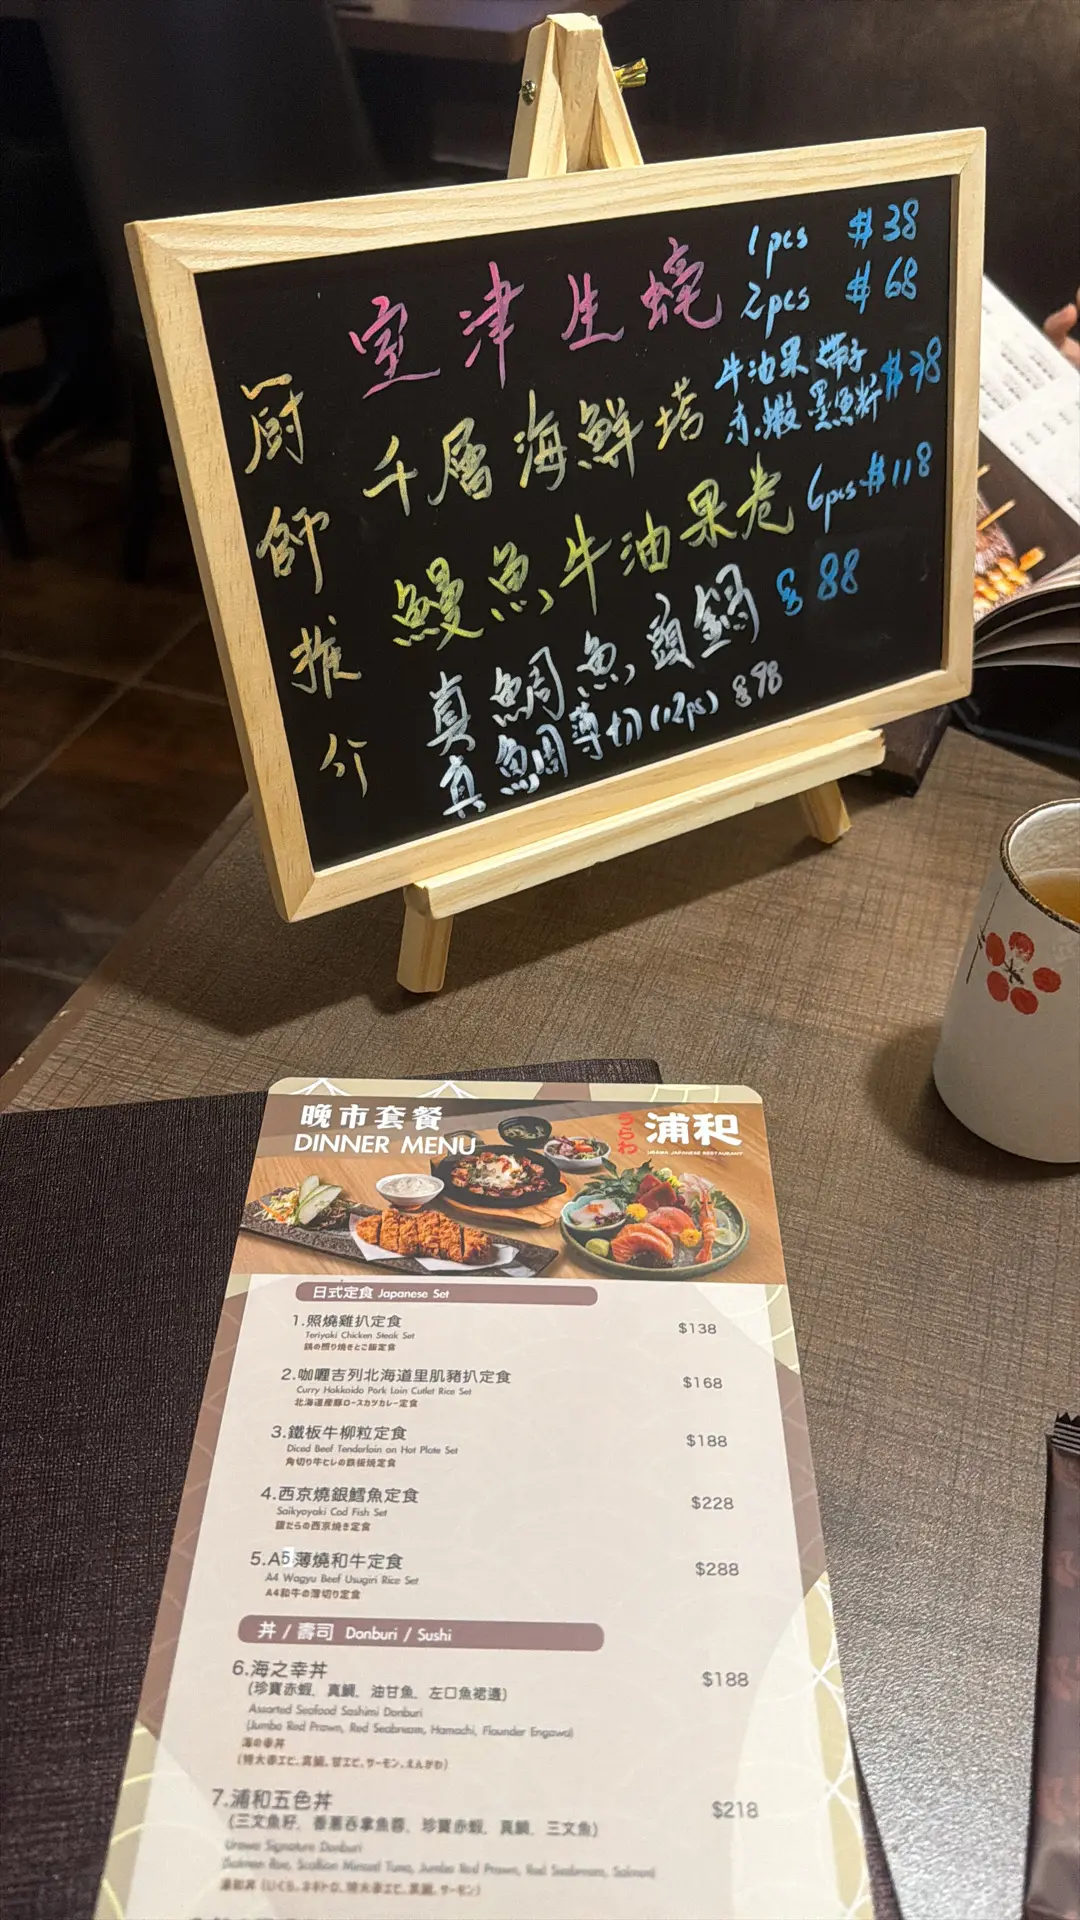 廚師推介
室津生蠔 1pcs $38
2pcs $68
千層海鮮塔 牛油果 帶子 $38
赤蝦 墨魚籽
鰻魚牛油果卷 6pcs $118
真鯛魚頭鍋 $88
真鯛薄切(12pcs) $98
晚市套餐
DINNER MENU
うらわ
浦和
URAWA JAPANESE RESTAURANT
日式定食 Japanese Set
1.照燒雞扒定食 $138
Teriyaki Chicken Steak Set
鶏の照り焼きとご飯定食
2.咖喱吉列北海道里肌豬扒定食 $168
Curry Hokkaido Pork Loin Cutlet Rice Set
北海道産豚ロースカツカレー定食
3.鐵板牛柳粒定食 $188
Diced Beef Tenderloin on Hot Plate Set
角切り牛ヒレの鉄板焼定食
4.西京燒銀鱈魚定食 $228
Saikyoyaki Cod Fish Set
銀だらの西京焼き定食
5.A5薄燒和牛定食 $288
A4 Wagyu Beef Usugiri Rice Set
A4和牛の薄切り定食
丼 / 壽司 Donburi / Sushi
6.海之幸丼 $188
(珍寶赤蝦、真鯛、油甘魚、左口魚裙邊)
Assorted Seafood Sashimi Donburi
(Jumbo Red Prawn, Red Seabream, Hamachi, Flounder Engawa)
海の幸丼
(特大赤エビ、真鯛、甘エビ、サーモン、えんがわ)
7.浦和五色丼 $218
(三文魚籽、香蔥吞拿魚蓉、珍寶赤蝦、真鯛、三文魚)
Urawa Signature Donburi
(Salmon Roe, Scallion Minced Tuna, Jumbo Red Prawn, Red Seabream, Salmon)
浦和丼 (いくら、ネギトロ、特大赤エビ、真鯛、サーモン)